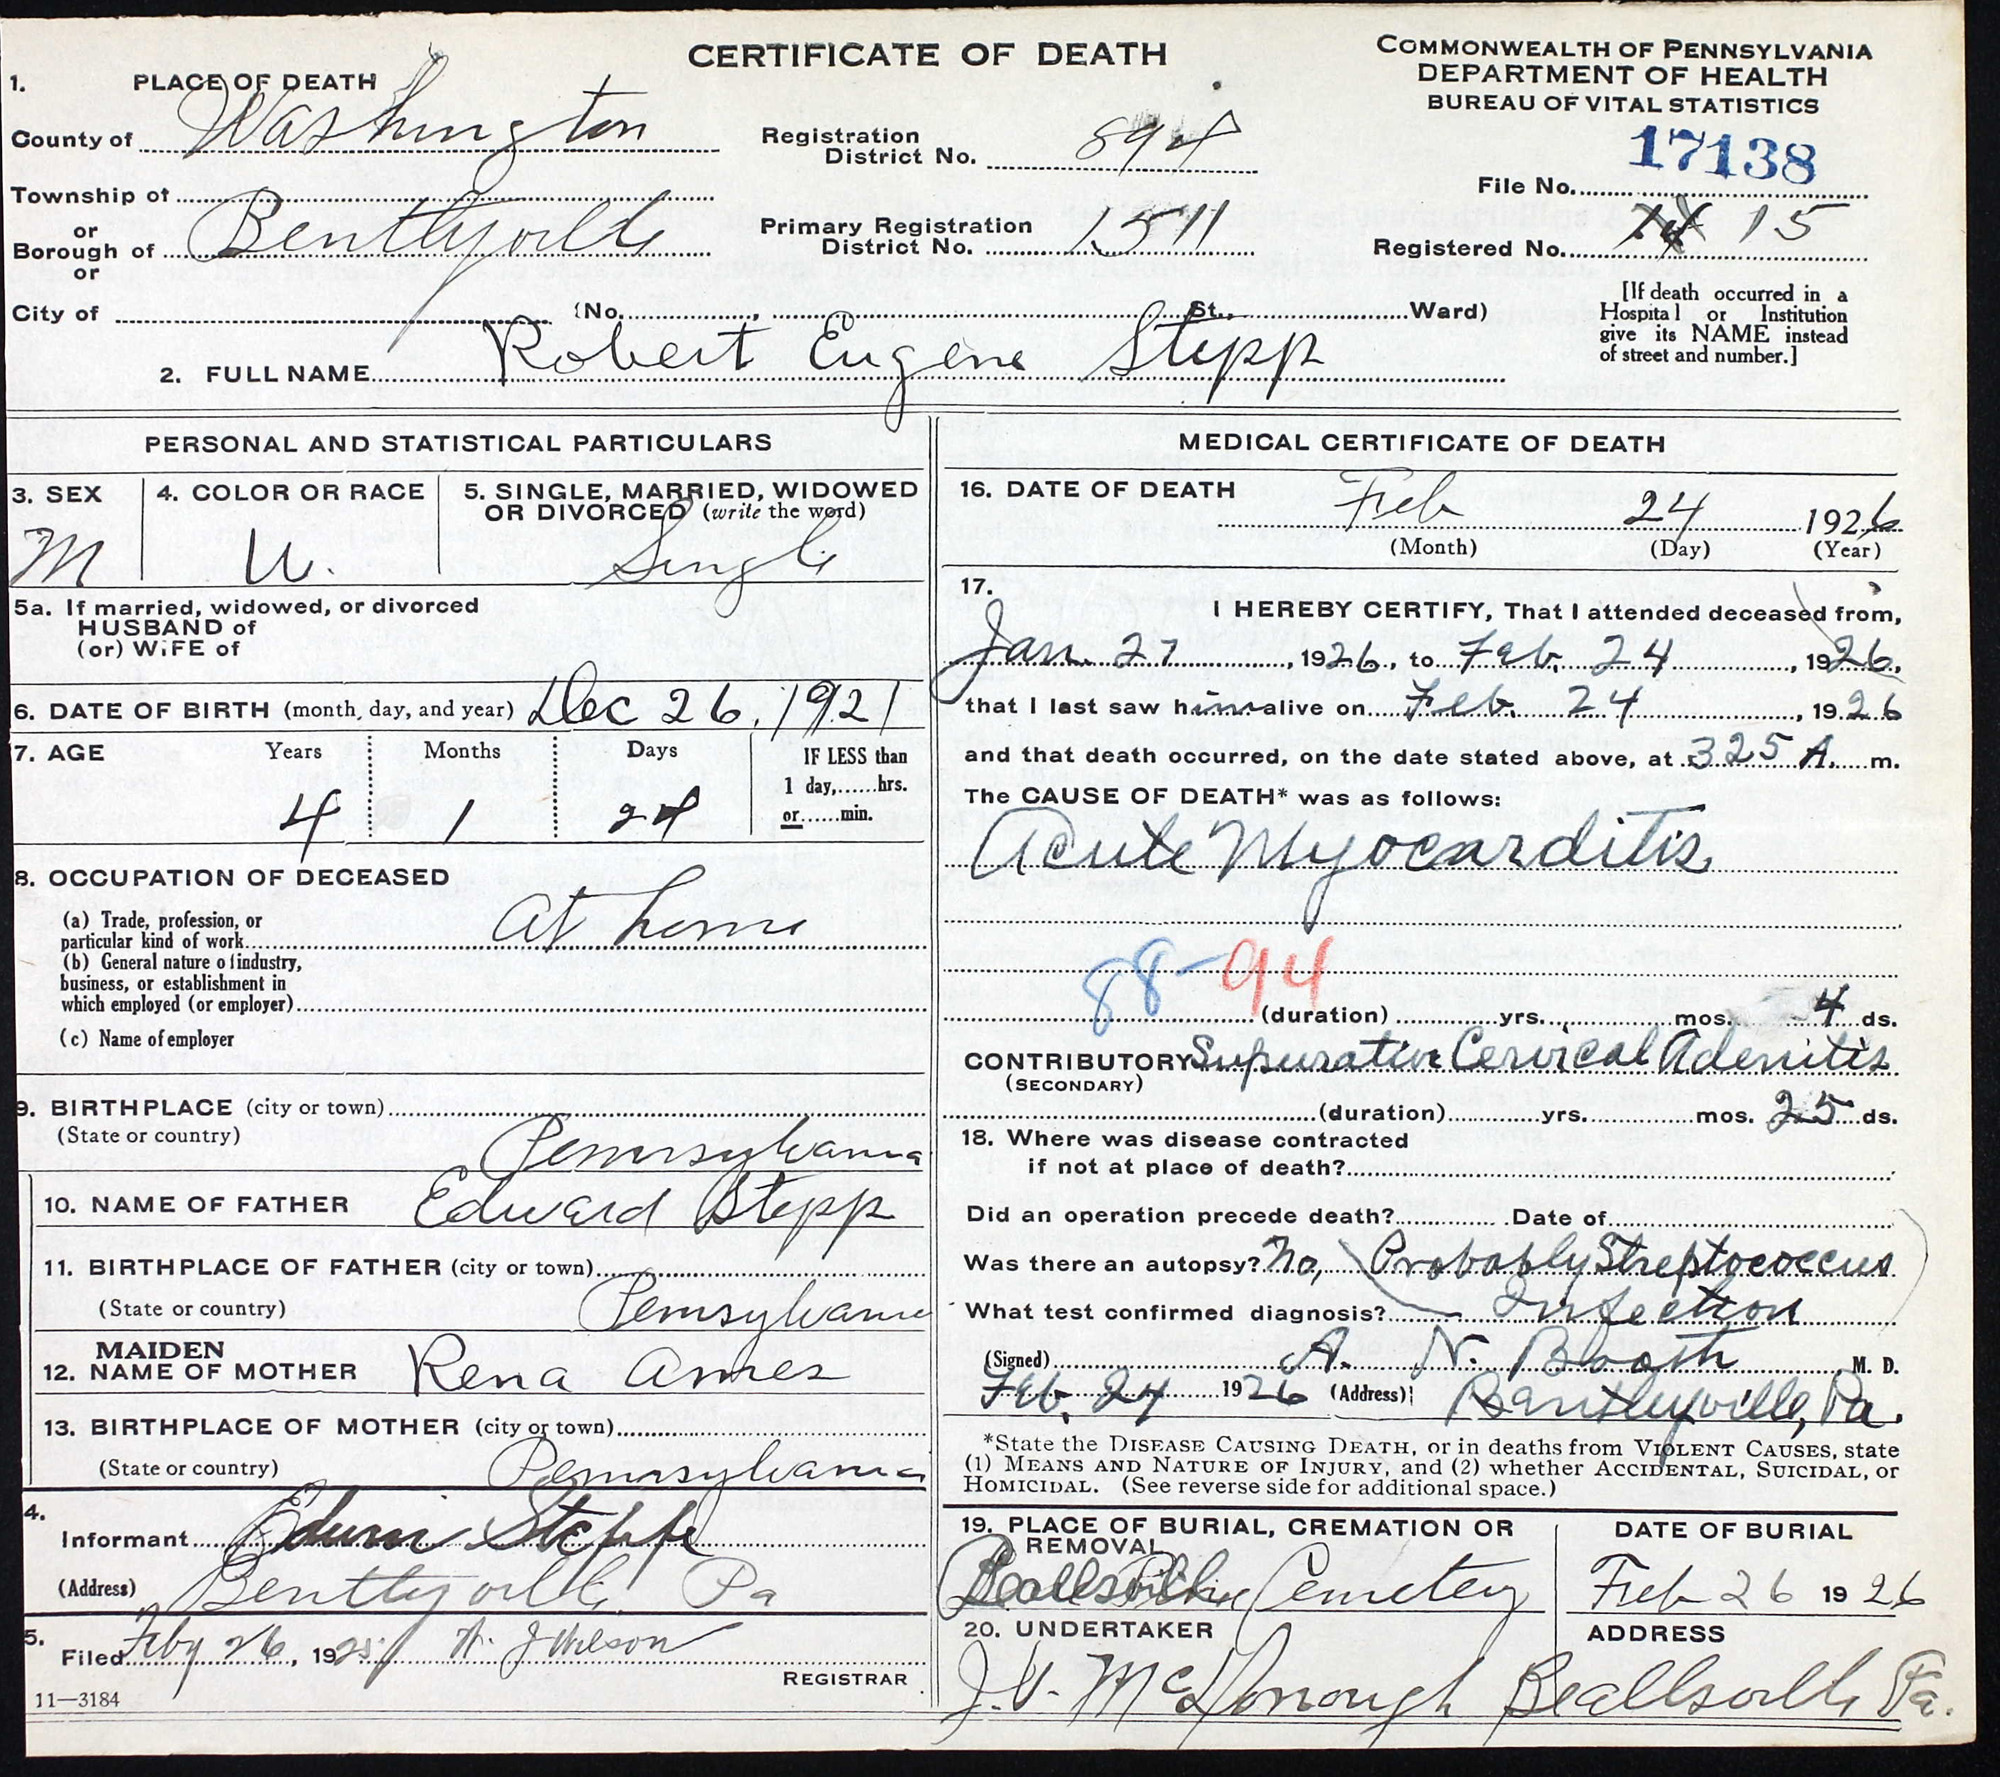 CERTIFICATE OF DEATH
COMMONWEALTH OF PENNSYLVANIA
DEPARTMENT OF HEALTH
BUREAU OF VITAL STATISTICS
1. PLACE OF DEATH
County of Washington
Registration District No. 894
17138
File No.
Township of
or
Borough of Bentleyville
or
Primary Registration District No. 1511
Registered No. 15
City of (No. , St., Ward)
[If death occurred in a
Hospital or Institution
give its NAME instead
of street and number.]
2. FULL NAME Robert Eugene Stepp
PERSONAL AND STATISTICAL PARTICULARS
3. SEX M
4. COLOR OR RACE W.
5. SINGLE, MARRIED, WIDOWED
OR DIVORCED (write the word)
Single
5a. If married, widowed, or divorced
HUSBAND of
(or) WIFE of
6. DATE OF BIRTH (month, day, and year) Dec 26, 1921
7. AGE Years Months Days IF LESS than
4 1 24 1 day,......hrs.
or......min.
8. OCCUPATION OF DECEASED
(a) Trade, profession, or
particular kind of work At home
(b) General nature of industry,
business, or establishment in
which employed (or employer)
(c) Name of employer
9. BIRTHPLACE (city or town)
(State or country) Pennsylvania
10. NAME OF FATHER Edward Stepp
11. BIRTHPLACE OF FATHER (city or town)
(State or country) Pennsylvania
MAIDEN
12. NAME OF MOTHER Rena Ames
13. BIRTHPLACE OF MOTHER (city or town)
(State or country) Pennsylvania
4.
Informant Edwin Steppe
(Address) Bentleyville, Pa
5.
Filed Feby 26, 1925 J Wilson
REGISTRAR
11—3184
MEDICAL CERTIFICATE OF DEATH
16. DATE OF DEATH
Feb 24 1926
(Month) (Day) (Year)
17.
I HEREBY CERTIFY, That I attended deceased from,
Jan. 27, 1926, to Feb. 24, 1926,
that I last saw him alive on Feb. 24, 1926
and that death occurred, on the date stated above, at 325 A. m.
The CAUSE OF DEATH* was as follows:
Acute Myocarditis
88- 94
(duration) yrs. mos. 4 ds.
CONTRIBUTORY Supurative Cervical Adenitis
(SECONDARY)
(duration) yrs. mos. 25 ds.
18. Where was disease contracted
if not at place of death?
Did an operation precede death? Date of
Was there an autopsy? No, Probably Streptococcus
What test confirmed diagnosis? Infection
(Signed) A. N. Booth M. D.
Feb. 24 1926 (Address) Bentleyville, Pa.
*State the DISEASE CAUSING DEATH, or in deaths from VIOLENT CAUSES, state
(1) MEANS AND NATURE OF INJURY, and (2) whether ACCIDENTAL, SUICIDAL, or
HOMICIDAL. (See reverse side for additional space.)
19. PLACE OF BURIAL, CREMATION OR
REMOVAL
DATE OF BURIAL
Beallsville Cemetery Feb 26 1926
20. UNDERTAKER ADDRESS
J. V. McDonough Beallsville Pa.